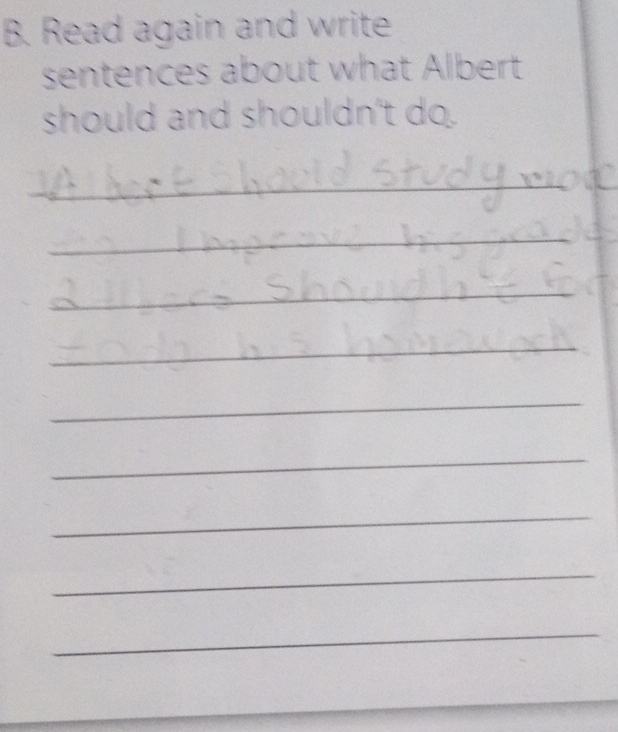 B. Read again and write
sentences about what Albert
should and shouldn't do.
1 Albert Should Study more
to Improve his grades
2 Albert Shouldn't for
to do his homework.